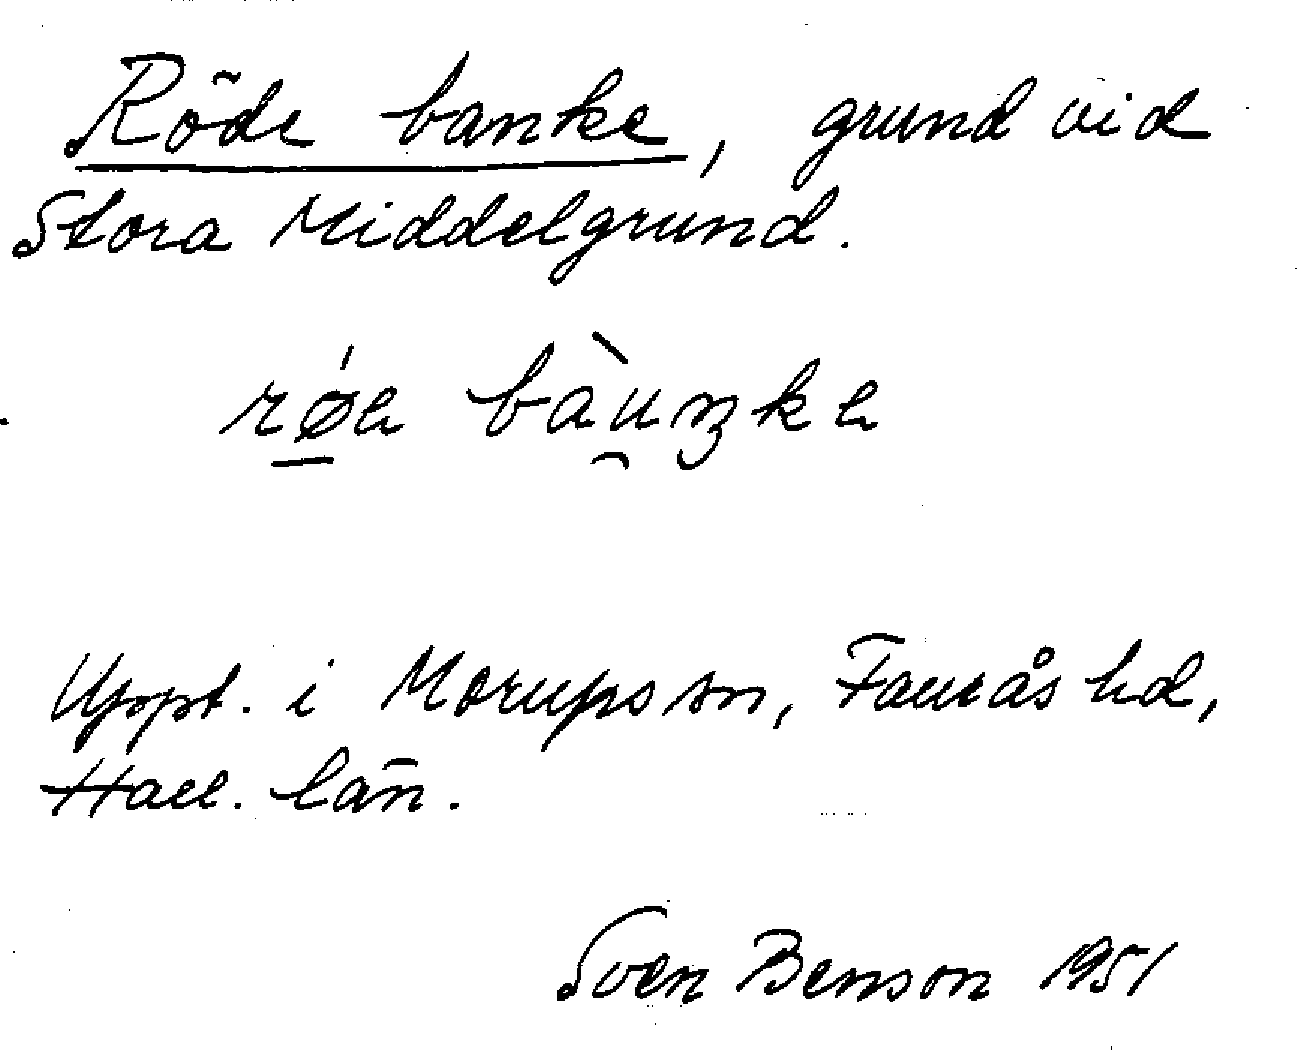 Röde banke, grund vid
Stora Middelgrund.
røe bàu̯ŋke
Uppt. i Morups sn, Faurås hd,
Hall. län.
Sven Benson 1951